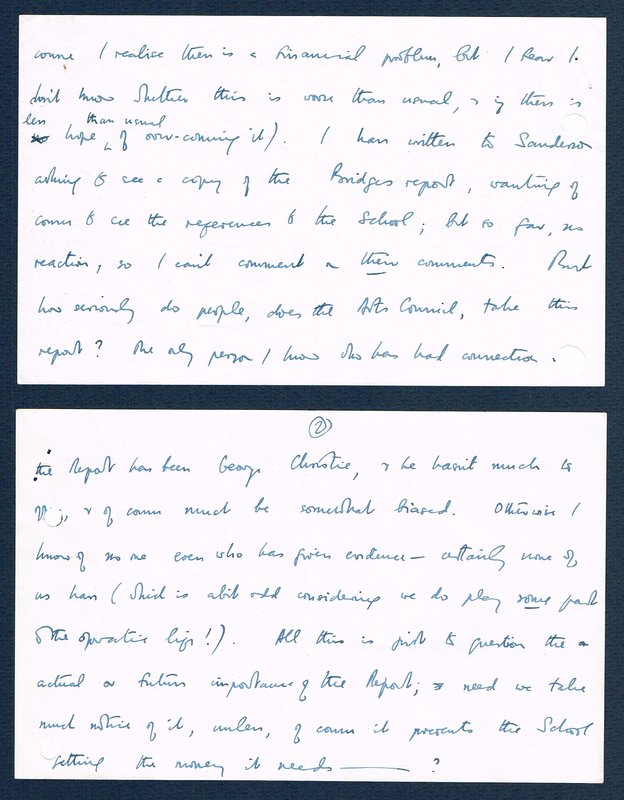 course I realise there is a financial problem, but I fear I
don't know whether this is worse than usual, & if there is
less than usual
hope of over-coming it). I have written to Sanderson
asking to see a copy of the Bridges report, wanting of
course to see the references to the School; but so far, no
reaction, so I can't comment on their comments. But
how seriously do people, does the Arts Council, take this
report? The only person I know who has had connection
②
the Report has been George Christie, & he hasn't much to
& of course must be somewhat biased. Otherwise I
know of no one even who has given evidence — certainly none of
us have (which is a bit odd considering we do play some part
in the operatic life!). All this is just to question the
actual or future importance of the Report; need we take
much notice of it, unless, of course it prevents the School
getting the money it needs ——— ?